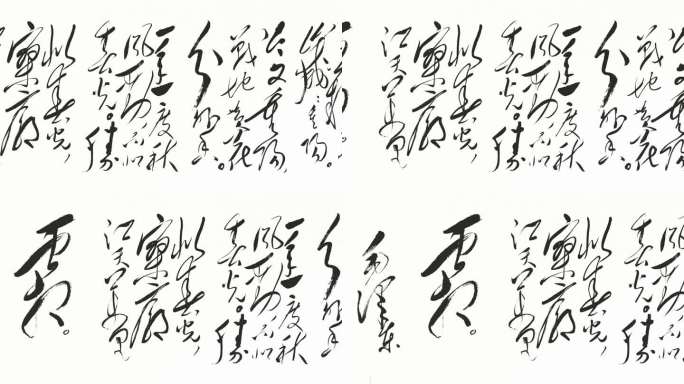 岁岁重阳。
今又重阳,
战地黄花
分外香。
一年一度秋
风劲不似
春光。胜
似春光,
寥廓
今又重阳,
战地黄花
分外香。
一年一度秋
风劲不似
春光。胜
似春光,
寥廓
江天万里
分外香
一年一度秋
风劲不似
春光。胜
似春光,
寥廓
江天万里
霜。
风劲不似
春光。胜
似春光,
寥廓
江天万里
霜。
毛泽东